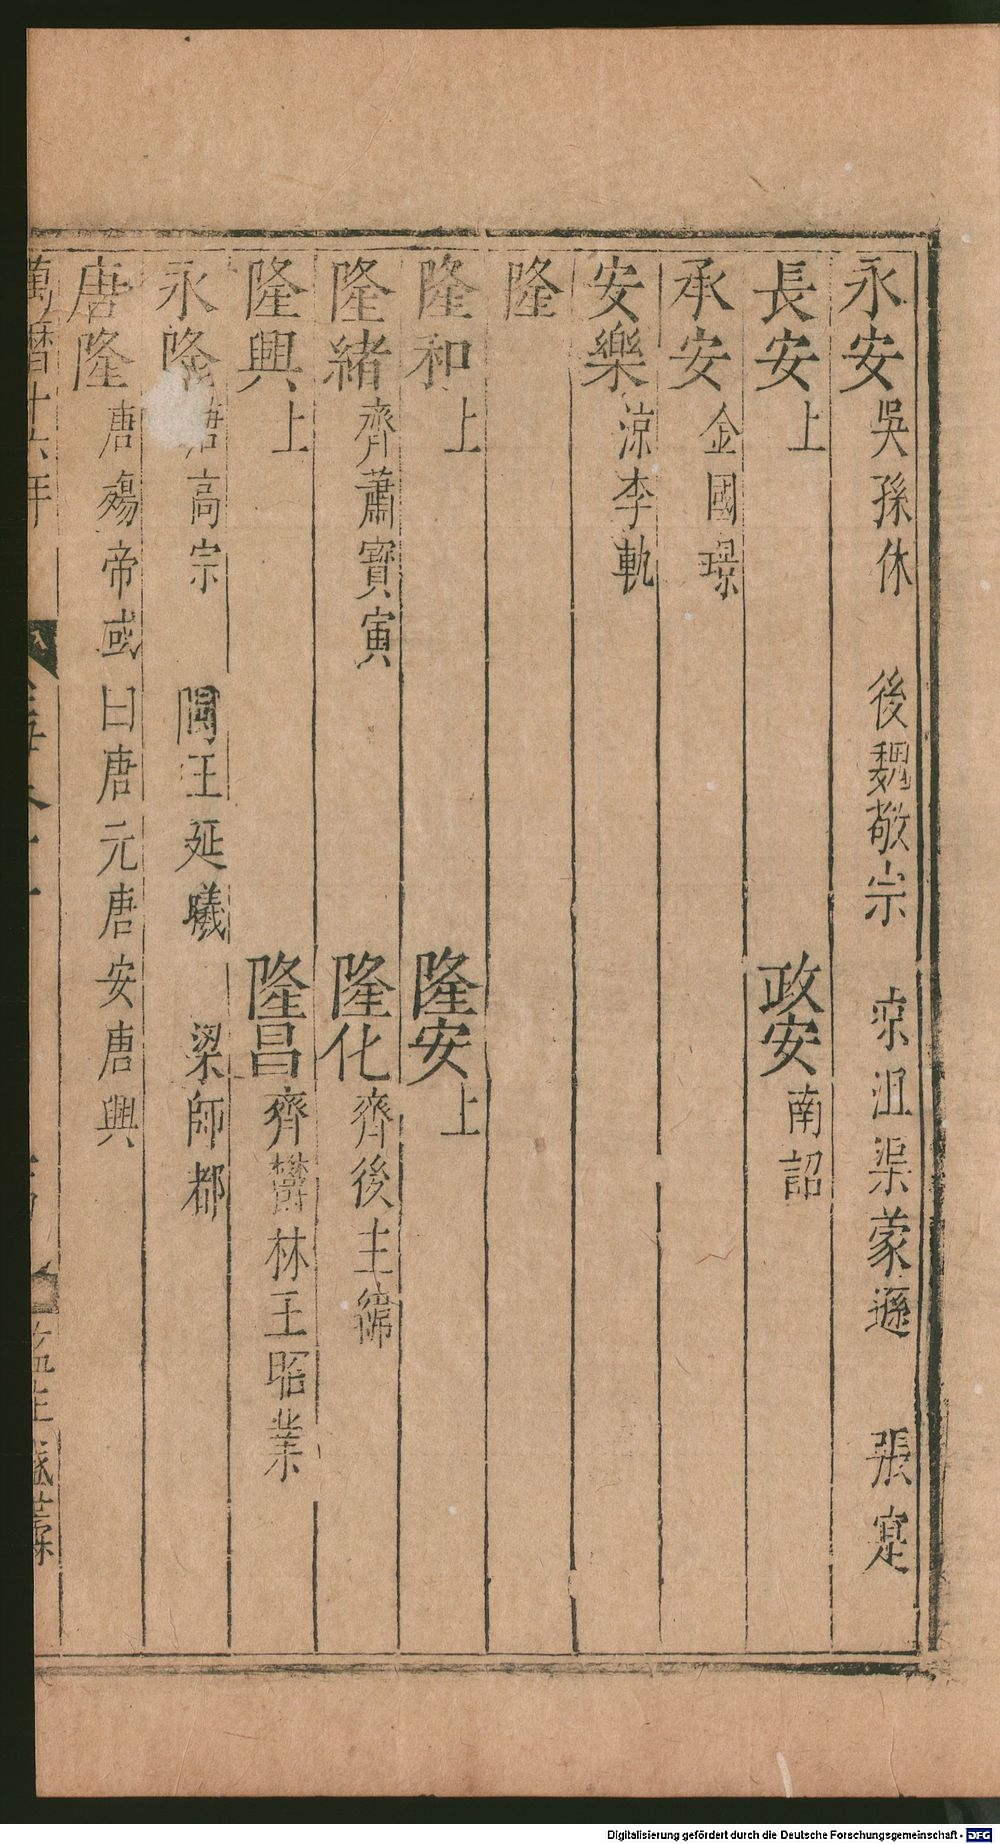 永安吳孫休 後魏敬宗 凉沮渠蒙遜 張寔
長安上 政安南詔
承安金國璟
安樂涼李軌
隆
隆和上 隆安上
隆緒齊蕭寶寅 隆化齊後主緯
隆興上 隆昌齊欎林王昭業
永隆唐高宗 閩王延曦 梁師都
唐隆唐殤帝或曰唐元唐安唐興
萬曆十六年
Digitalisierung gefördert durch die Deutsche Forschungsgemeinschaft - DFG